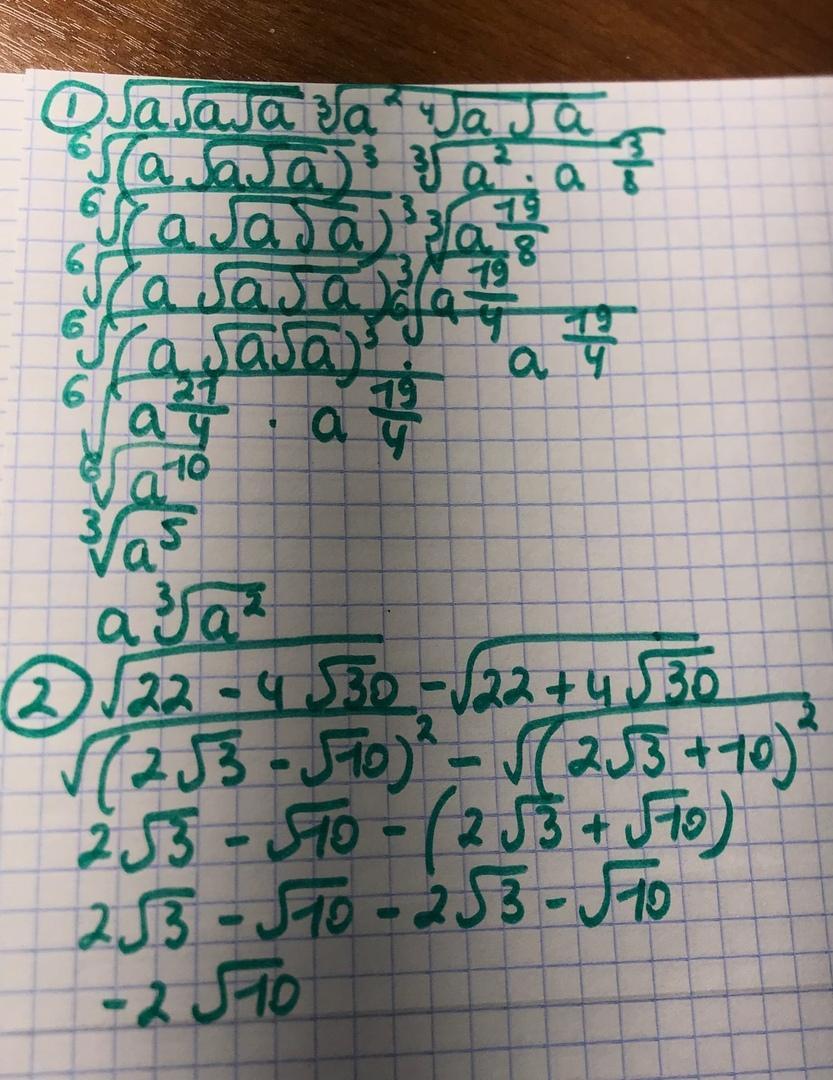 ① √(a√(a√a)) ∛(a² ⁴√(a√a))
⁶√((a√(a√a))³) ∛(a² · a^(3/8))
⁶√((a√(a√a))³) ∛(a^(19/8))
⁶√((a√(a√a))³) ⁶√(a^(19/4))
⁶√((a√(a√a))³ · a^(19/4))
⁶√(a^(21/4) · a^(19/4))
⁶√(a¹⁰)
∛(a⁵)
a∛(a²)
② √(22 - 4√30) - √(22 + 4√30)
√((2√3 - √10)²) - √((2√3 + 10)²)
2√3 - √10 - (2√3 + √10)
2√3 - √10 - 2√3 - √10
-2√10